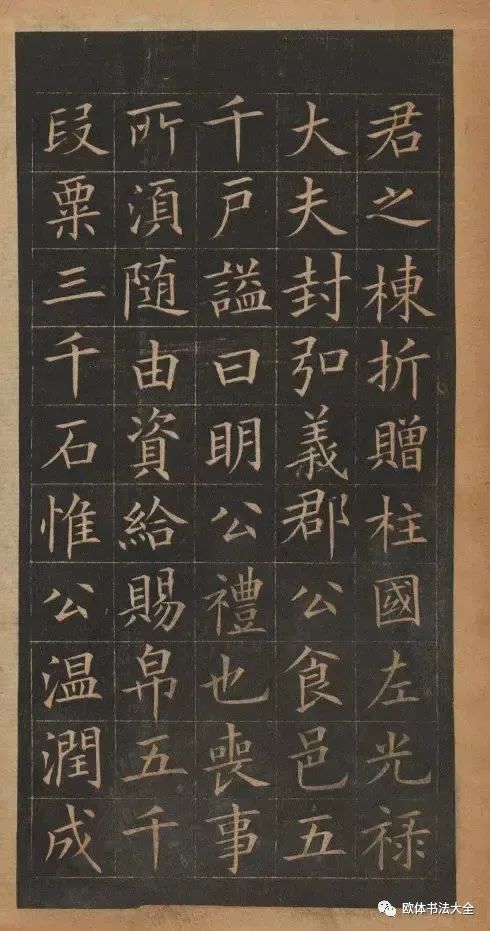 君之棟折贈柱國左光禄
大夫封弘義郡公食邑五
千戸謚曰明公禮也喪事
所湏随由資給賜帛五千
段粟三千石惟公温潤成
欧体书法大全